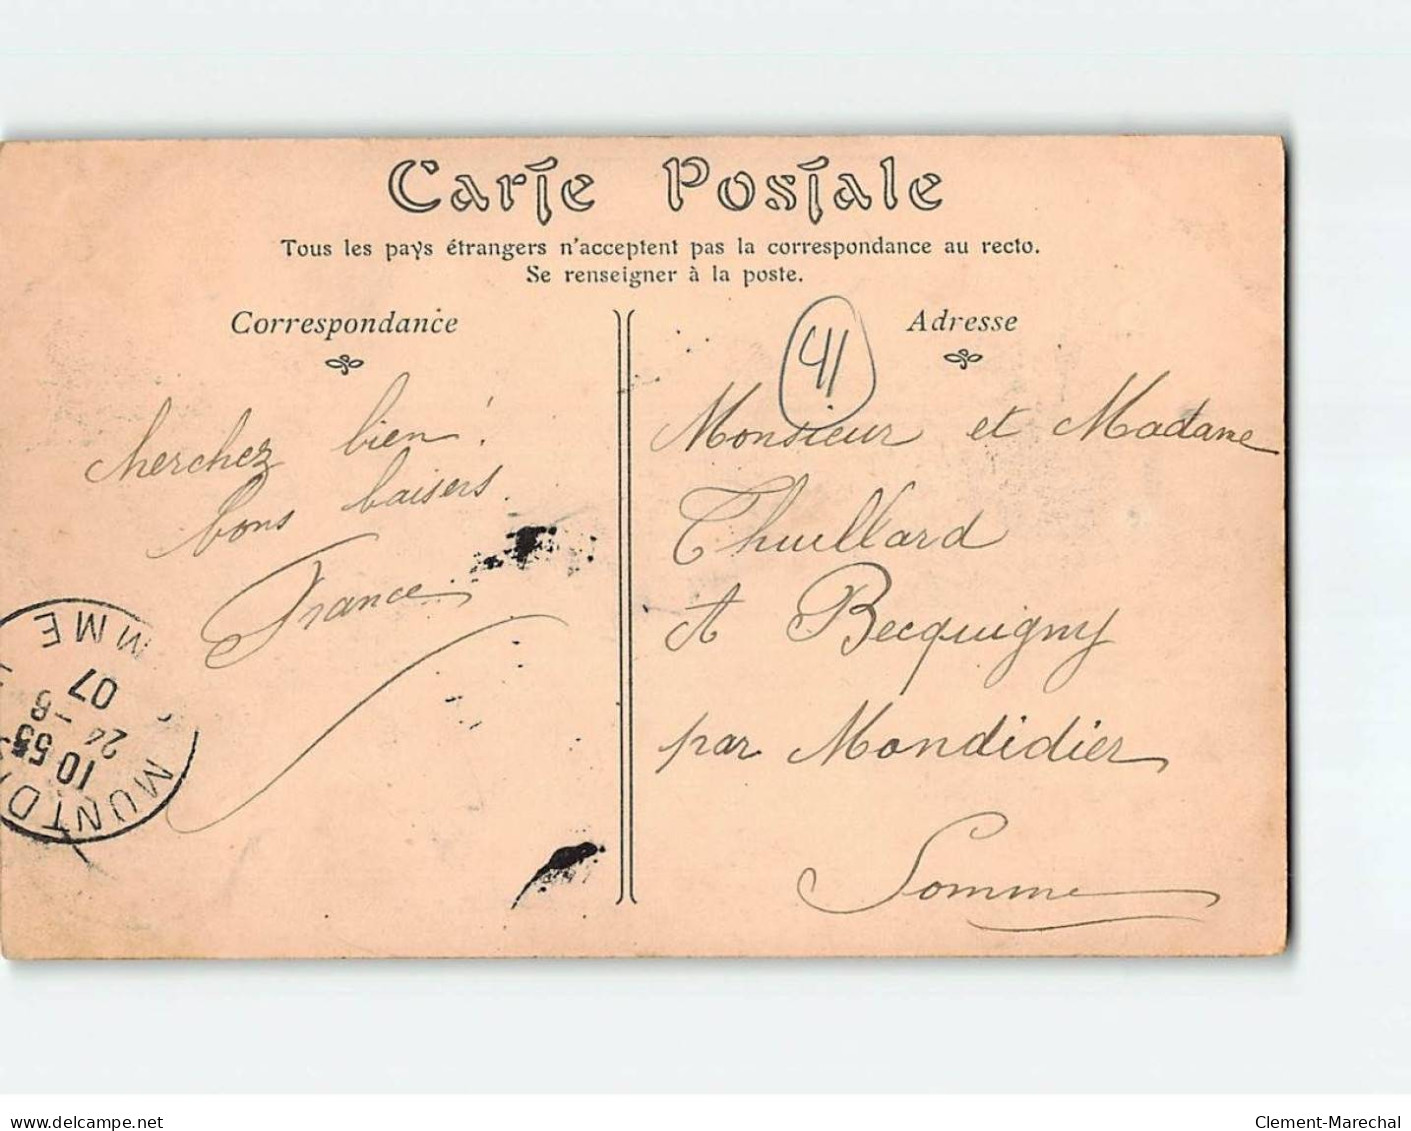 Carte Postale
Tous les pays étrangers n'acceptent pas la correspondance au recto.
Se renseigner à la poste.
Correspondance
Adresse
41
cherchez bien !
bons baisers.
France
Monsieur et Madame
Thuillard
A Becquigny
par Mondidier
Somme
MONTD
MME
10 55
24 -8
07
www.delcampe.net
Clement-Marechal